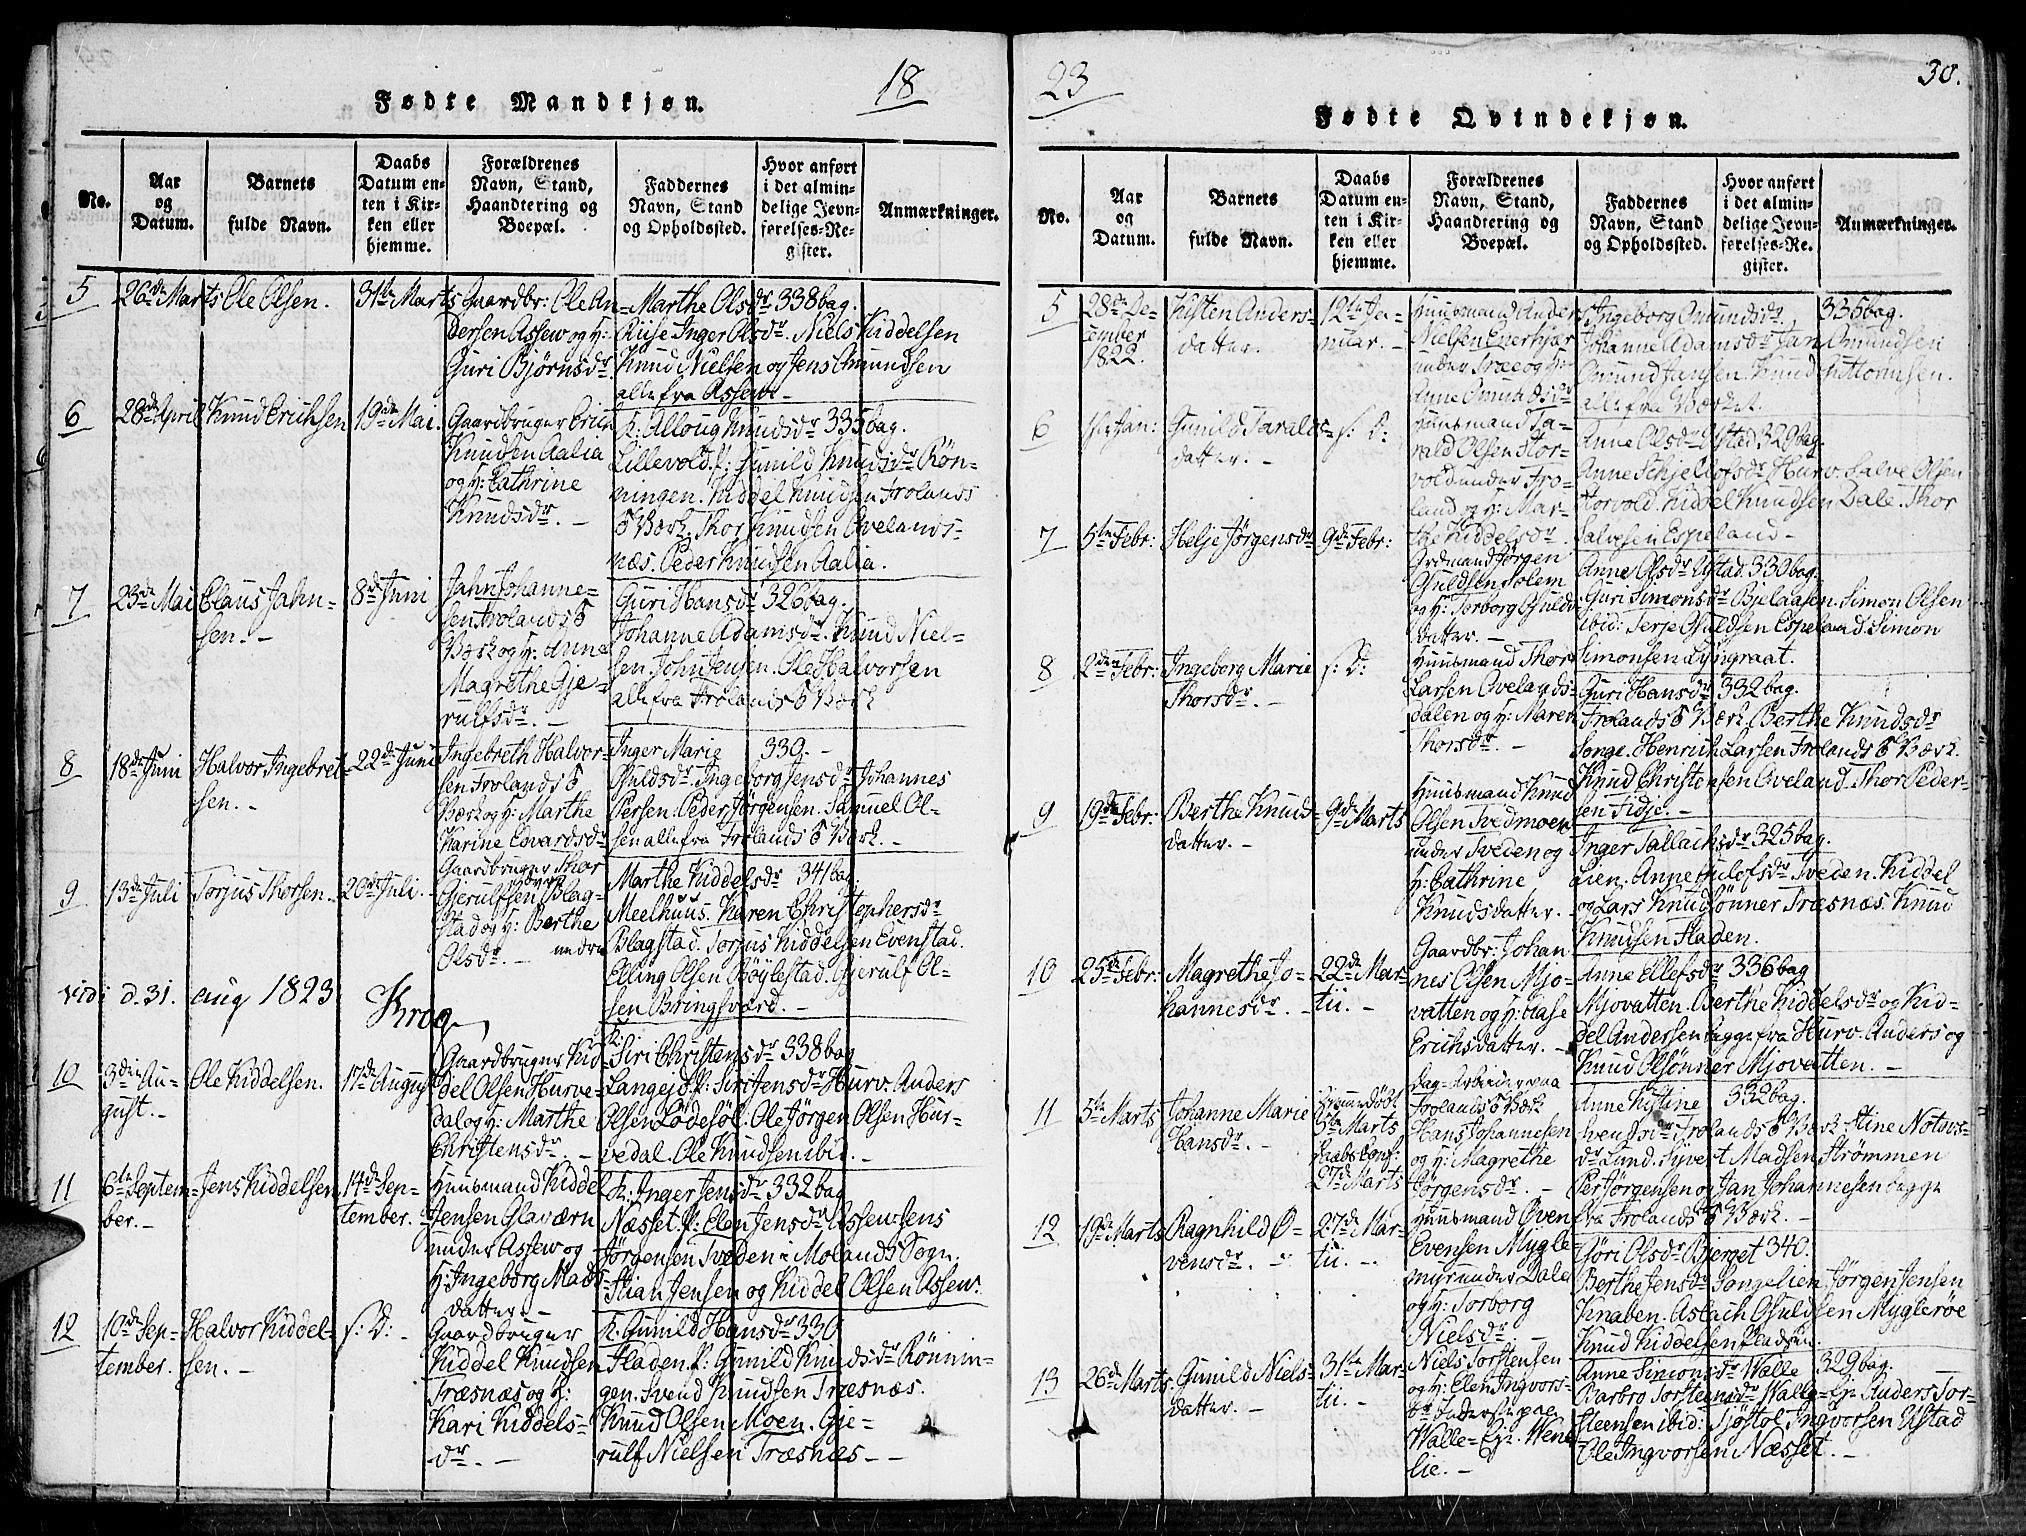 18
Fødte Mandkjøn.
No.
Aar
og
Datum.
Barnets
fulde Navn.
Daabs
Datum en-
ten i Kir-
ken eller
hjemme.
Forældrenes
Navn, Stand,
Haandtering og
Boepæl.
Faddernes
Navn, Stand
og Opholdssted.
Hvor anført
i det almin-
delige Jevn-
førelses-Re-
gister.
Anmærkninger.
5
26de Marts
Ole Olsen.
31te Marts
Gaardbr: Ole An-
dersen Assew og H:
Guri Bjørnsdr
Marthe Olsdr 338 bag.
Riise Inger Olsdr. Niels Kiddelsen
Knud Nielsen og Jens Omundsen
alle fra Assew. -
6
28de April
Knud Erichsen
19de Mai.
Gaardbruger Erich
Knudsen Aalia
og H: Cathrine
Knudsdr. -
K: Alloug Knudsdr 335 bag.
Lillevold. P: Gunild Knudsdr Røn-
ningen. Kiddel Knudsen Frolands
Værk. Thor Knudsen Ovelands-
næs. Peder Knudsen Aalia.
7
23de Mai
Claus Jahn-
sen. -
8de Juni
Jahn Johanne-
sen Frolands
Værk og H: Anne
Magrethe Gje-
rulfsdr. -
Guri Hansdr 326 bag.
Johanne Adamsdr. Knud Niel-
sen. John Jensen. Ole Halvorsen
alle fra Frolands Værk
8
18de Juni
Halvor Ingebret-
sen. -
22de Juni
Ingebreth Halvor-
sen Frolands
Værk og H: Marthe
Karine Edvardsdr
Inger Marie 339. -
Osuldsdr. Ingeborg Jensdr Johannes
Persen. Peder Jørgensen. Samuel Ol-
sen alle fra Frolands Værk. -
9
13de Juli
Torjus Thorsen.
20de Juli.
Gaardbruger Thor
Gjerulfsen Blag-
stad øvre
og H: Berthe
Olsdr. -
Marthe Kiddelsdr 341 bag.
Meelhuus. Karen Christophersdr
Blagstad. Torjus Kiddelsen Evenstad.
Elling Olsen Bøylestad. Gjerulf Ol-
sen Bringsværd. -
Vidi d. 31. Aug 1823
Krog
10
3die Au-
gust. -
Ole Kiddelsen.
17de August
Gaardbruger Kid-
del Olsen Hurve-
dal og H: Marthe
Christensdr. -
K:
Siri Christensdr 338 bag
Langejd. P: Siri Jensdr Hurv. Anders
Olsen Lødesøl. Ole Jørgen Olsen Hur-
vedal. Ole Knudsen ibid. -
11
6te Septem-
ber. -
Jens Kiddelsen
14de Sep-
tember.
Huusmand Kiddel
Jensen Glaværn
under Assew og
H: Ingeborg Mads-
datter. -
K: Inger Jensdr 332 bag
Næsset. P: Elen Jensdr Assew. Jens
Jørgensen Sveden Molands Sogn.
Stian Jensen og Kiddel Olsen Assew.
12
10de Sep-
tember.
Halvor Kiddel-
sen. -
s: D: -
Gaardbruger
Kiddel Knudsen
Træsnæs og H:
Kari Kiddels-
dr. -
K: Gunild Hansdr 330
Fladen. P: Gunild Knudsdr Rønnin-
gen. Svend Knudsen Træsnæs.
Knud Olsen Moen. Gje-
rulf Nielsen Træsnæs - -
23
30.
Fødte Qvindekjøn.
No.
Aar
og
Datum.
Barnets
fulde Navn.
Daabs
Datum en-
ten i Kir-
ken eller
hjemme.
Forældrenes
Navn, Stand,
Haandtering og
Boepæl.
Faddernes
Navn, Stand
og Opholdssted.
Hvor anført
i det almin-
delige Jevn-
førelses-Re-
gister.
Anmærkninger.
5
28de De-
cember
1822.
Kisten Anders-
datter.
12te Ja-
nuar. -
Huusmand Anders
Nielsen Enerkjær
under Træe og H:
Anne Omundsdr
Ingeborg Omundsdr 335 bag.
Johanne Adamsdr Jan Omundsen
Omund Jansen. Knud Guttormsen.
alle fra Værket.
6
1ste Jan:
Gunild Taralds-
datter. -
s: D:
Huusmand Ta-
rald Olsen Stor-
vold under Fro-
land og H: Mar-
the Kiddelsdr.
Anne Olsdr Ufstad 329 bag.
Anne Schjellofsdr Hurv. Salve Olsen
Storvold. Kiddel Knudsen Dale. Thor
Salvesen Espeland -
7
5te Febr:
Helje Jørgensdr
9de Febr:
Jørgen
Osuldsen Solem
og H: Torborg Osulds-
datter. -
Anne Olsdr Ufstad. 330 bag.
Guri Simonsdr Bjelaasen. Simon Olsen
ibid: Terje Osuldsen Espeland. Simon
Simonsen Lyngraat.
8
2den Febr:
Ingeborg Marie
Thorsdr. -
s: D:
Huusmand Thor
Larsen Ovelands-
dalen og H: Maren
Thorsdr. -
Guri Hansdr 332 bag.
Frolands Værk. Berthe Knudsdr
Songe. Henrich Larsen Frolands Værk.
Knud Christensen Oveland. Thor Peder-
sen Fidje. -
9
19de Febr:
Berthe Knuds-
datter. -
9de Marts
Huusmand Knud
Olsen Tvedmoen
under Tveden og
H: Cathrine
Knudsdatter. -
Inger Tallachsdr 325 bag.
Lien. Anne Eulofsdr Tveden. Kiddel
og Lars Knudsønner Træsnæs. Knud
Knudsen Fladen.
10
25de Febr:
Magrethe Jo-
hannesdr. -
22de Mar-
tii. -
Gaardbr: Johan-
nes Olsen Mjo-
vatten og H: Aase
Erichsdatter. -
Anne Ellefsdr 336 bag
Mjovatten. Berthe Kiddelsdr og Kid-
del Andersen begge fra Hurv. Anders og
Knud Olsønner Mjovatten. -
11
5te Marts
Johanne Marie
Hansdr. -
Hjemmedøbt
5te Marts
Daabs Conf:
27de Marts
Dag-Arbeider paa
Frolands Værk
Hans Johannesen
og H: Magrethe
Jørgensdr. -
Anne Kistine 332 bag.
Svendsdr Frolands Værk. Stine Notavs-
dr Lund. Syvert Madsen Strømmen
Per Jørgensen og Jan Johannesen begge
fra Frolands Værk. -
12
19de Marts
Ragnhild Ø-
vensdr. -
27de Mar-
tii. -
Huusmand Øven
Evensen Mygle-
myr under Dale
og H: Torborg
Nielsdr. -
Jøri Olsdr Bjerget 340.
Berthe Jensdr Songelien. Jørgen Jensen
Knaben. Aslach Osuldsen Mygleröe
Knud Kiddelsen Pladsen.
13
26de Marts
Gunild Niels-
datter. -
31te Mar-
tii. -
Niels Torstensen
og H: Elen Ingvors-
dr Inderster paa
Walle-Eje. Wene-
lie. -
Anne Simonsdr Walle 329 bag.
Barbro Torstensdr Walle-Eje. Anders Tor-
steensen ibid: Sjøstol Ingvorsen Ufstad
Ole Ingvorsen Næsset. -